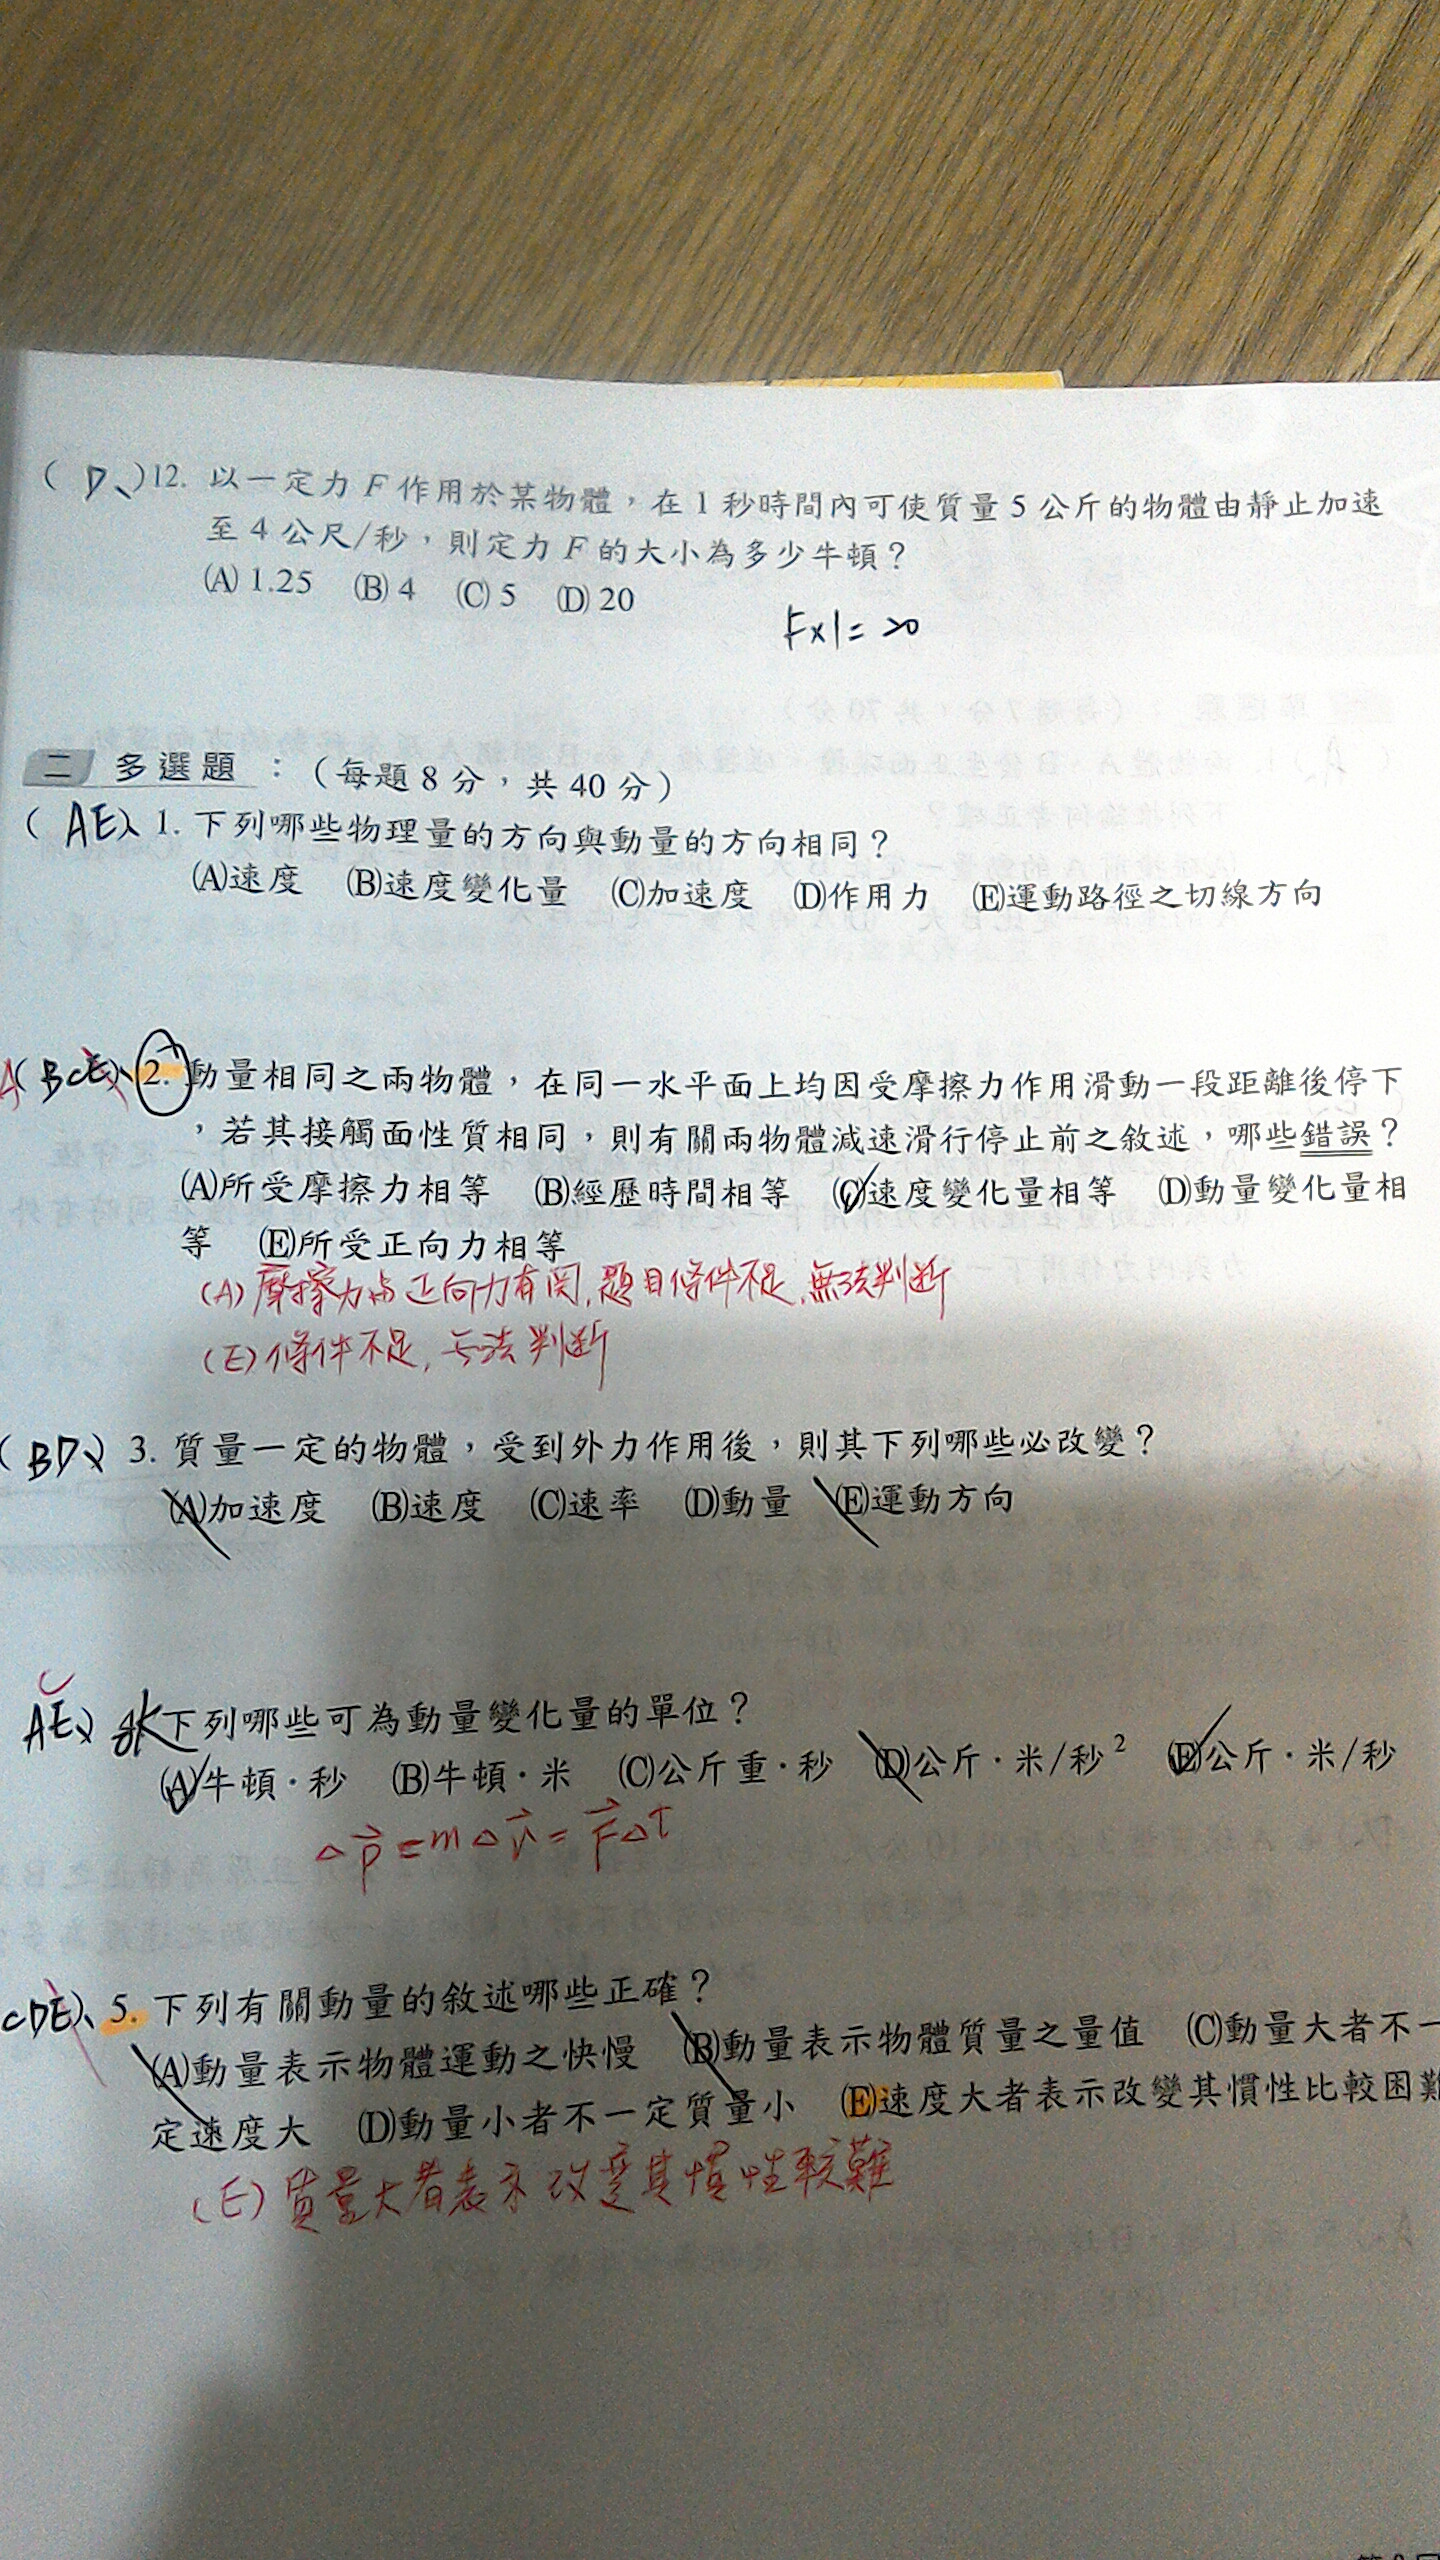 ( D、)12. 以一定力 F 作用於某物體，在 1 秒時間內可使質量 5 公斤的物體由靜止加速
至 4 公尺/秒，則定力 F 的大小為多少牛頓？
(A) 1.25 (B) 4 (C) 5 (D) 20
F×1= 20
二 多選題 ：（每題 8 分，共 40 分）
( AE、 1. 下列哪些物理量的方向與動量的方向相同？
(A)速度 (B)速度變化量 (C)加速度 (D)作用力 (E)運動路徑之切線方向
A( BCE)、 2. 動量相同之兩物體，在同一水平面上均因受摩擦力作用滑動一段距離後停下
，若其接觸面性質相同，則有關兩物體減速滑行停止前之敘述，哪些錯誤？
(A)所受摩擦力相等 (B)經歷時間相等 (C)速度變化量相等 (D)動量變化量相
等 (E)所受正向力相等
(A) 摩擦力与正向力有関, 題目條件不足, 無法判断
(E) 條件不足, 无法判断
( BD、) 3. 質量一定的物體，受到外力作用後，則其下列哪些必改變？
(A)加速度 (B)速度 (C)速率 (D)動量 (E)運動方向
C
AE、 下列哪些可為動量變化量的單位？
(A)牛頓·秒 (B)牛頓·米 (C)公斤重·秒 (D)公斤·米/秒² (E)公斤·米/秒
△p⃗ = m△v⃗ = F⃗△t
CDE)、 5. 下列有關動量的敘述哪些正確？
(A)動量表示物體運動之快慢 (B)動量表示物體質量之量值 (C)動量大者不一
定速度大 (D)動量小者不一定質量小 (E)速度大者表示改變其慣性比較困難
(E) 質量大者表示改変其慣性較難